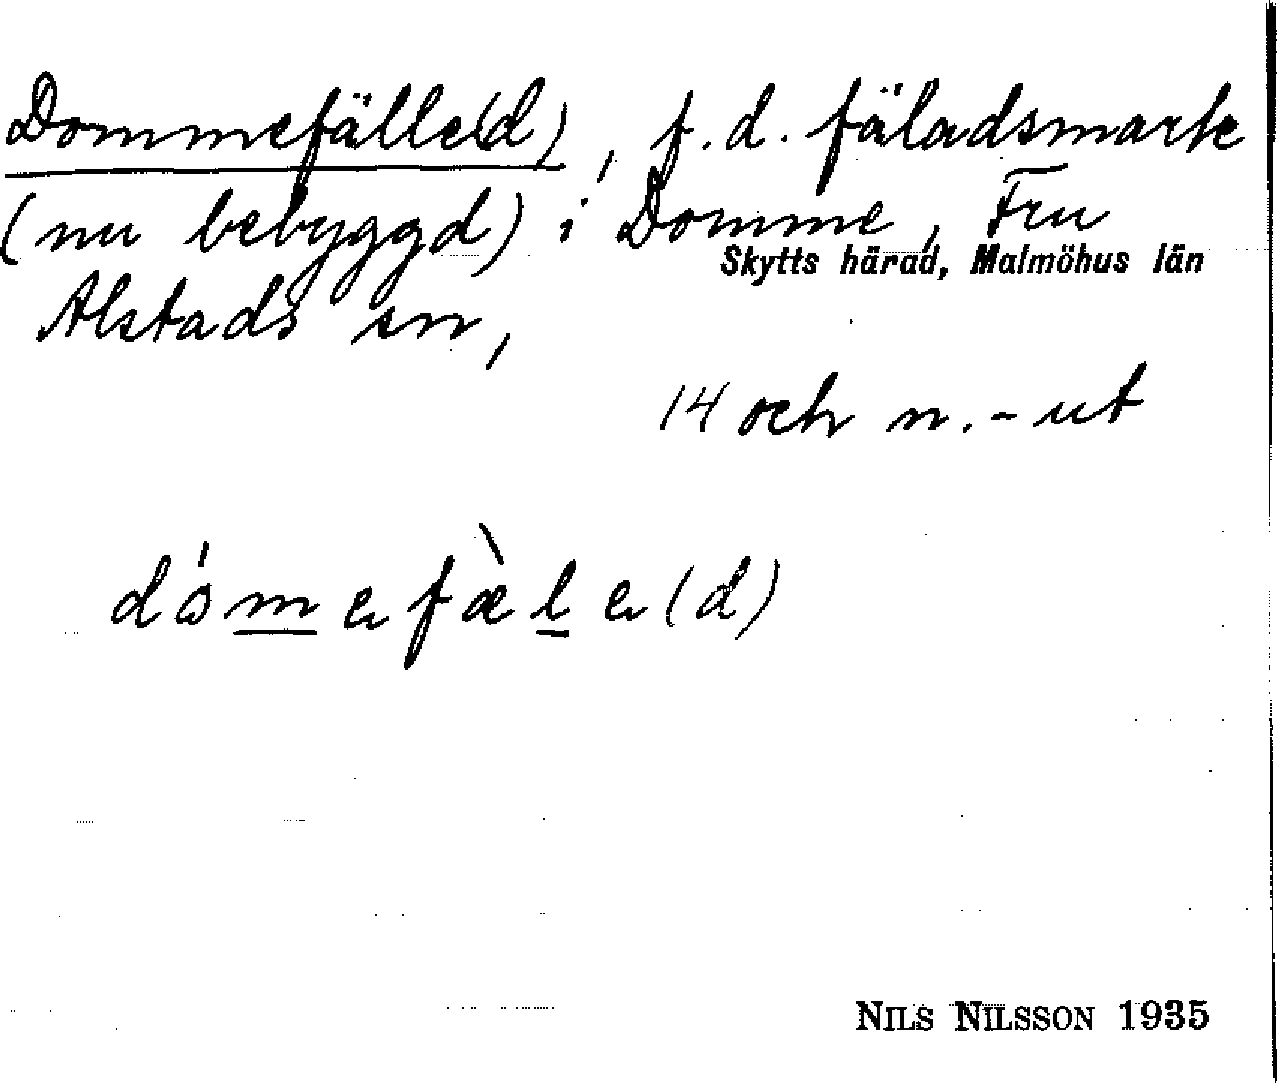 Dommefälle(d), f.d. fäladsmark
(nu bebyggd) i Domme, Fru
Skytts härad, Malmöhus län
Alstads sn,
14 och n.-ut
dómefæ̀le(d)
NILS NILSSON 1935